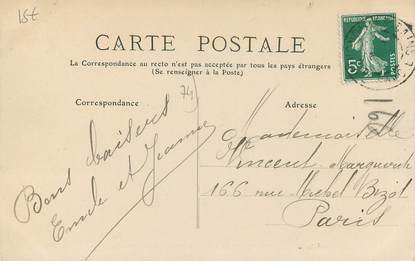 15€
CARTE POSTALE
La Correspondance au recto n'est pas acceptée par tous les pays étrangers
(Se renseigner à la Poste)
REPUBLIQUE FRANÇAISE
5c
POSTES
Correspondance
74
Adresse
Bons baisers
Emile et Jeanne
Mademoiselle
Vincent
166 rue Michel Bizot
Paris